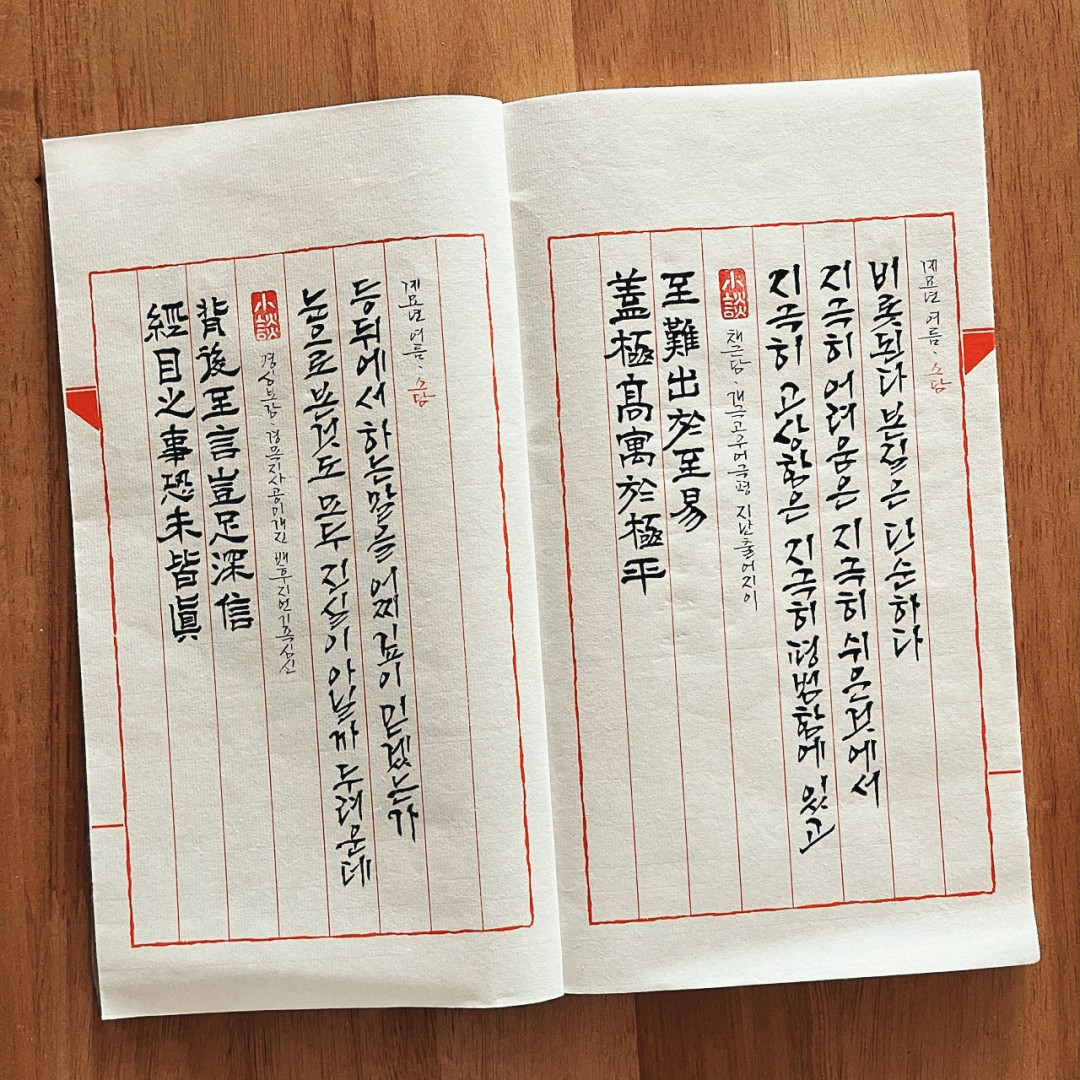 經目之事恐未皆眞
背後至言豈足深信
小談
명심보감 경목지사공미개진 배후지언기족심신
눈으로 본것도 모두 진실이 아닐까 두려운데
등뒤에서 하는말을 어찌 깊이 믿겠는가
계묘년 여름·소담
蓋極高寓於極平
至難出於至易
小談
채근담·개극고우어극평 지난출어지이
지극히 고상함은 지극히 평범함에 있고
지극히 어려움은 지극히 쉬운것에서
비롯된다 본질은 단순하다
계묘년 여름·소담